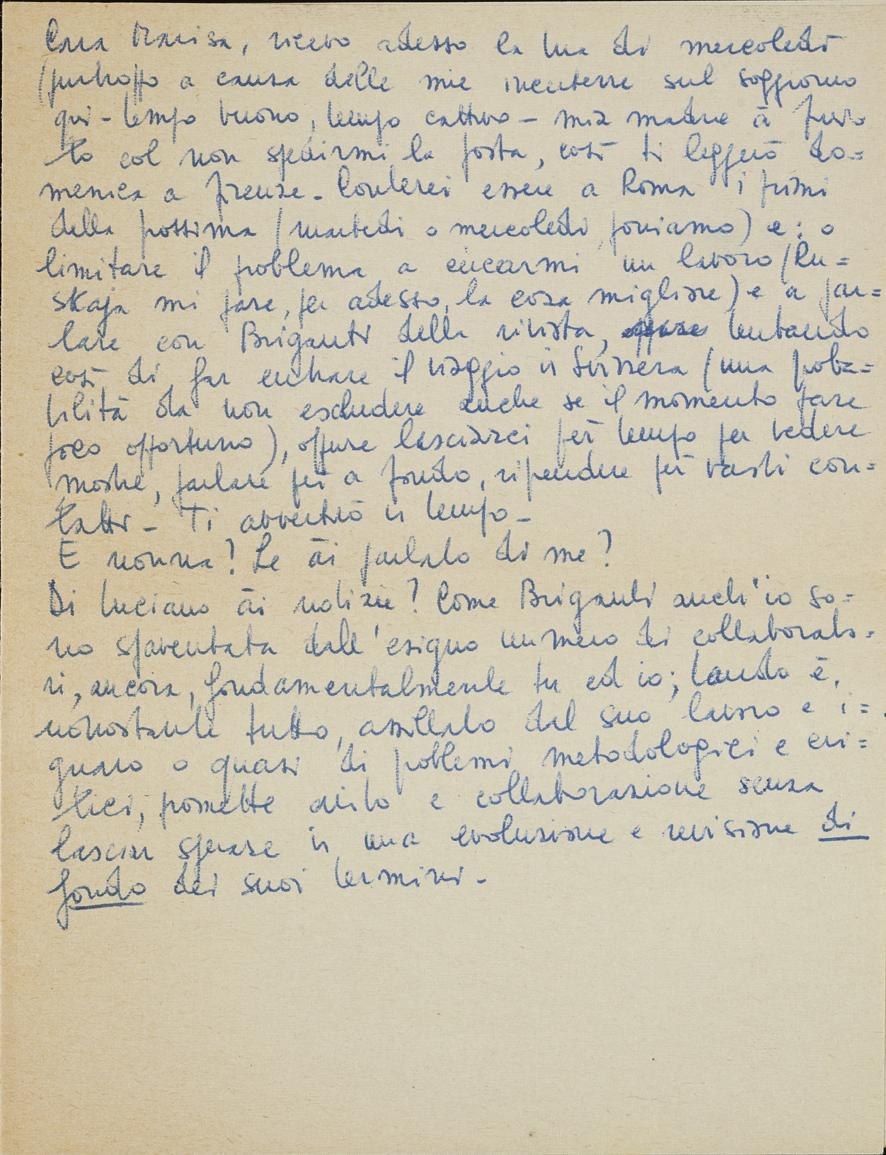 Cara Marisa, ricevo adesso la tua di mercoledì
(purtroppo a causa delle mie incertezze sul soggiorno
qui - tempo buono, tempo cattivo - mia madre à fini
to col non spedirmi la posta, così ti leggerò do=
menica a Firenze. Conterei essere a Roma i primi
della prossima (martedì o mercoledì, poniamo) e: o
limitare il problema a cercarmi un lavoro (Ru=
skaja mi pare, per adesso, la cosa migliore) e a par=
lare con Briganti della rivista, oppure tentando
così di far entrare il viaggio in Svizzera (una proba=
bilità da non escludere anche se il momento pare
poco opportuno), oppure lasciarci più tempo per vedere
mostre, parlare più a fondo, riprendere più vasti con=
tatti - Ti avvertirò in tempo -
E nonna? Le ài parlato di me?
Di Luciano ài notizie? Come Briganti anch'io so=
no spaventata dall'esiguo numero dei collaborato=
ri, ancora, fondamentalmente tu ed io; è,
nonostante tutto, assillato dal suo lavoro e i=
gnaro o quasi di problemi metodologici e cri=
tici, promette aiuto e collaborazione senza
lasciar sperare in una evoluzione e revisione di
fondo dei suoi termini -